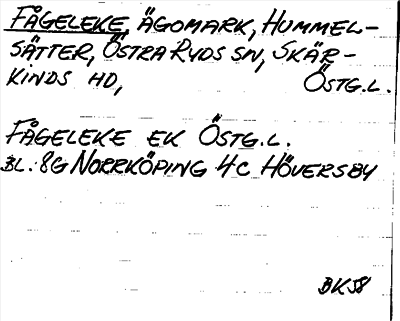 FÅGELEKE, ÄGOMARK, HUMMEL-
SÄTTER, ÖSTRA RYDS SN, SKÄR-
KINDS HD, ÖSTG.L.
FÅGELEKE EK ÖSTG.L.
BL. 8G NORRKÖPING 4C HÖVERSBY
BK58